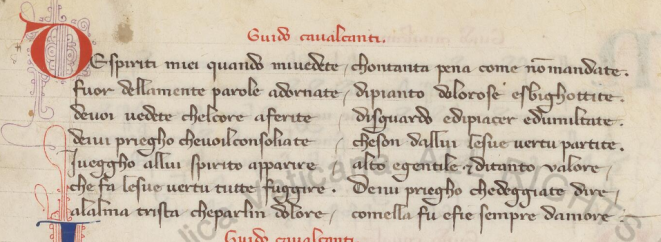 Guido cavalcanti.
DEspiriti miei quando mivedete / chontanta pena come nōmandate.
fuor dellamente parole adornate / dipianto dolorose esbighottite.
devoi vedete chelcore aferite disguardo edipiacer edumilitate.
devi priegho chevoilconsoliate cheson dallui lesue vertu partite.
Jueggho allui spirito apparire alto egentile ⁊ditanto valore /
che fa lesue vertu tutte fuggire. Devi priegho chedeggiate dire /
alalma trista cheparlin dolore / comella fu efie sempre damore.
Guido cavalcanti